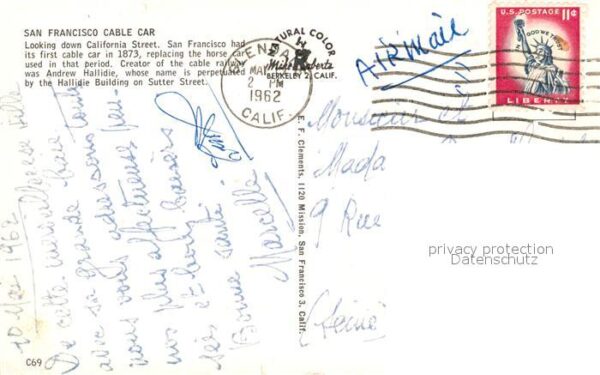 SAN FRANCISCO CABLE CAR
Looking down California Street. San Francisco had
its first cable car in 1873, replacing the horse car
used in that period. Creator of the cable railway
was Andrew Hallidie, whose name is perpetuated
by the Hallidie Building on Sutter Street.
NATURAL COLOR
Mike Roberts
BERKELEY 2, CALIF.
2 PM
1962
CALIF.
AIRMail
U.S. POSTAGE 11¢
IN GOD WE TRUST
LIBERTY
10 Mai 1962
De cette merveilleuse ville
avec sa grande baie
nous vous adressons tous
nos plus affectueuses pensées
et bons baisers
Bonne santé
Marcelle
E. F. Clements, 1120 Mission, San Francisco 3, Calif.
Monsieur et
Mada
9 Rue
(Seine)
privacy protection
Datenschutz
C69